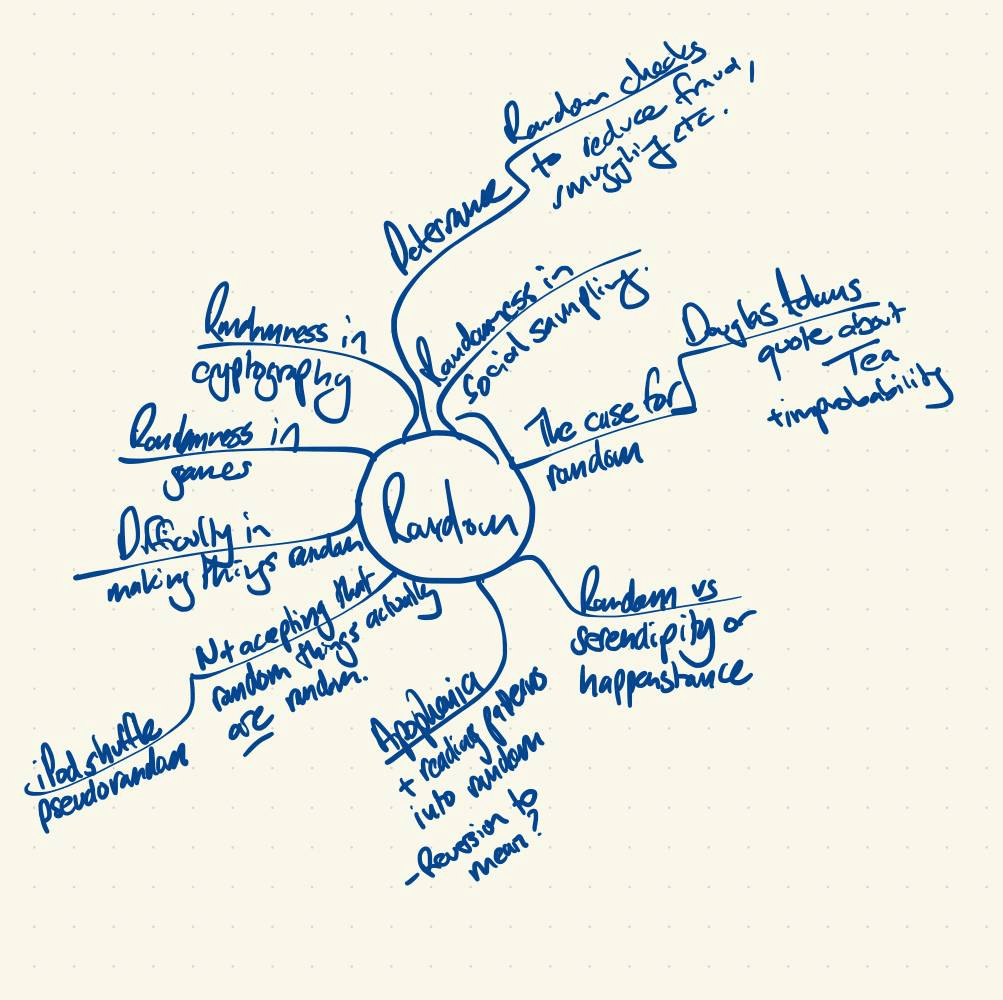 Random checks
to reduce fraud,
smuggling etc.
Deterrance
Randomness in
social sampling.
Douglas Adams
quote about
Tea
+improbability
The case for
random
Randomness in
cryptography
Randomness in
games
Random
Difficulty in
making things random
Not accepting that
random things actually
are random.
iPod shuffle
pseudorandom
Random vs
serendipity or
happenstance
Apophenia
+ reading patterns
into random
- Reversion to
mean?